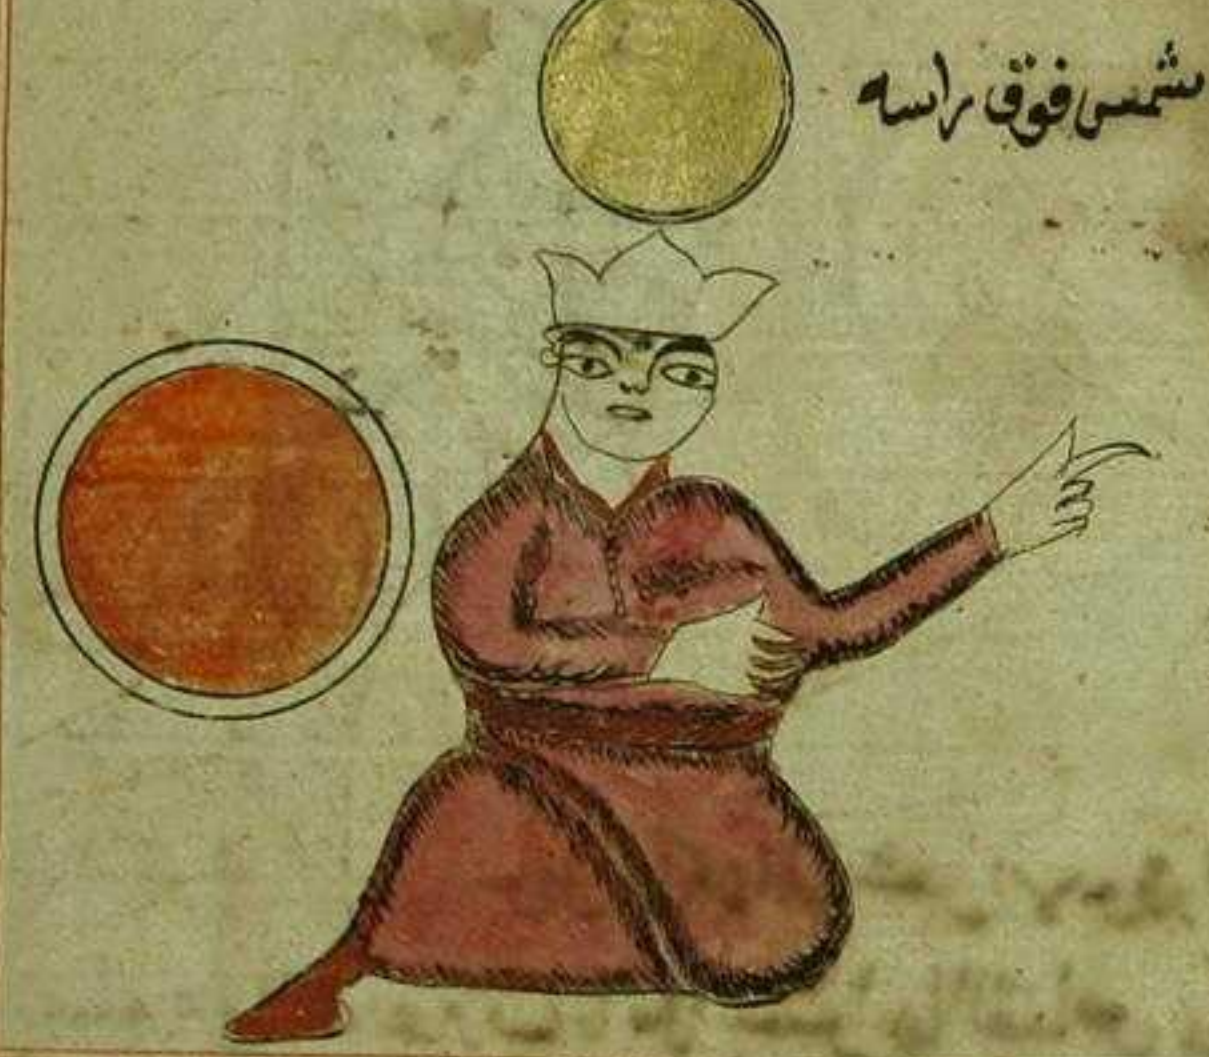 شمس فوق راسه